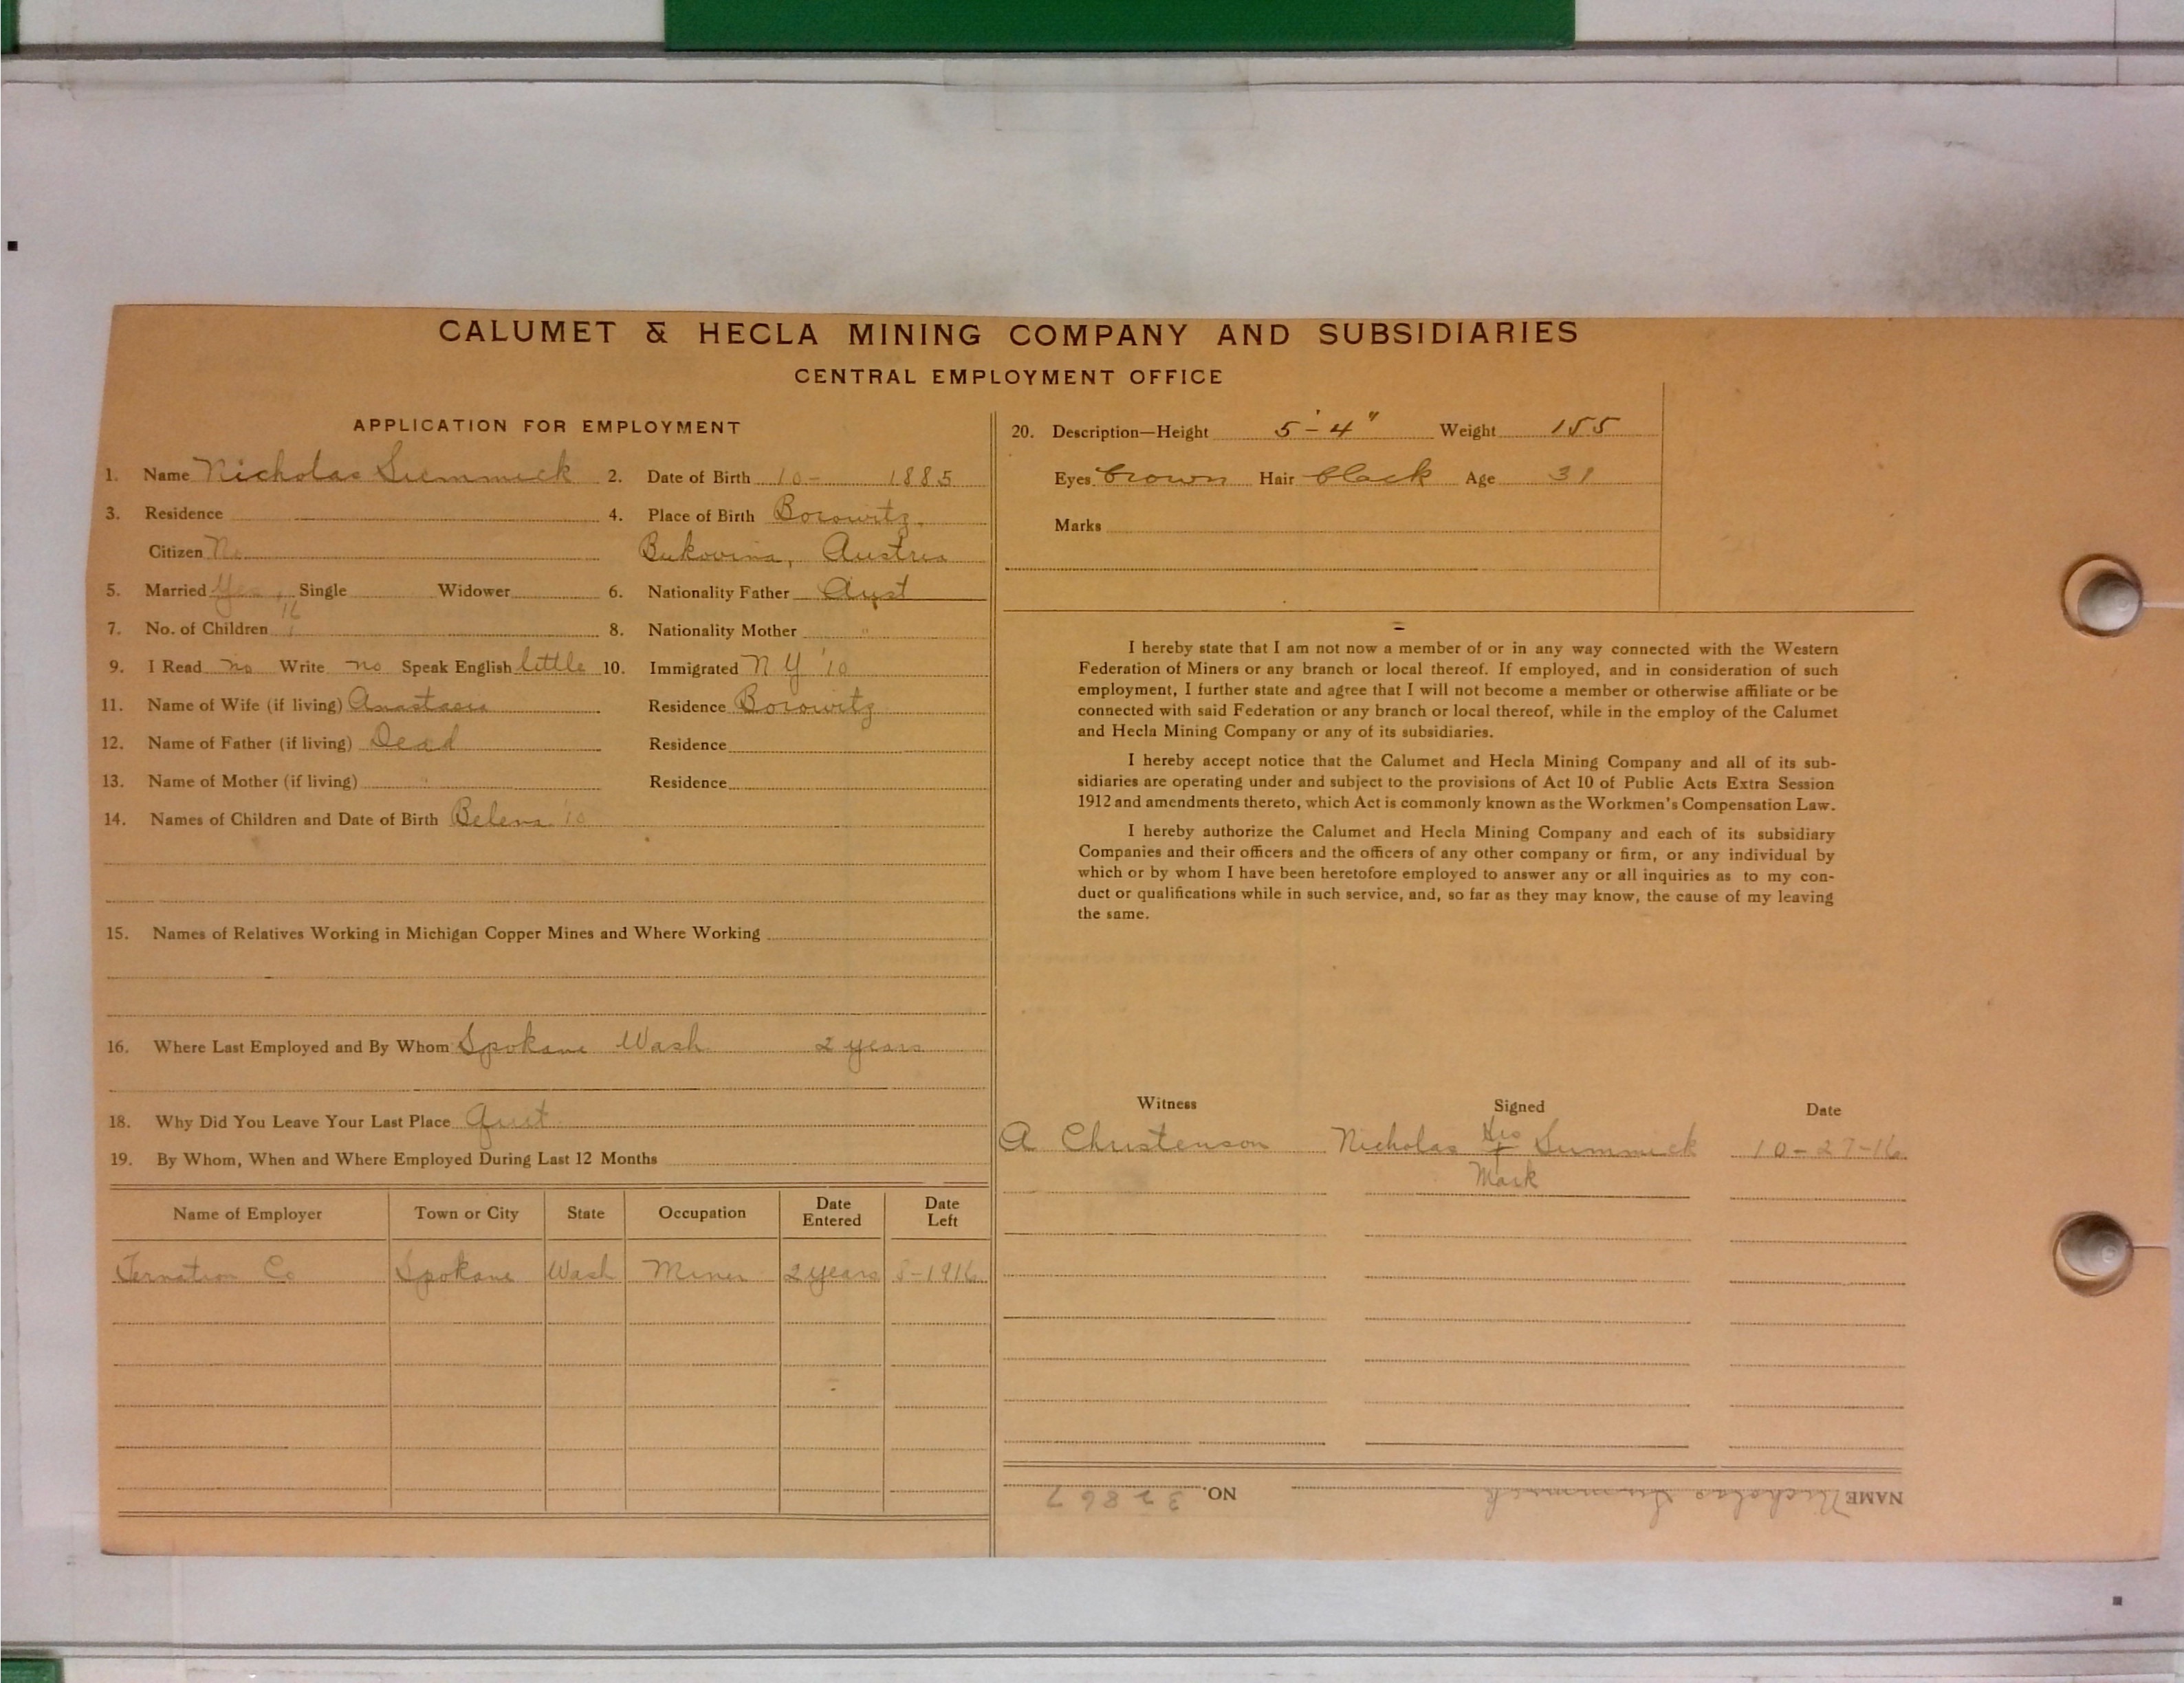 CALUMET & HECLA MINING COMPANY AND SUBSIDIARIES
CENTRAL EMPLOYMENT OFFICE
APPLICATION FOR EMPLOYMENT
1. Name Nicholas Summick 2. Date of Birth 10- 1885
3. Residence 4. Place of Birth Borowitz,
Citizen No Bukovina, Austria
5. Married Yes, Single Widower 6. Nationality Father Aust
16
7. No. of Children 1 8. Nationality Mother "
9. I Read no Write no Speak English little 10. Immigrated N Y '10
11. Name of Wife (if living) Anastasia Residence Borowitz
12. Name of Father (if living) Dead Residence
13. Name of Mother (if living) " Residence
14. Names of Children and Date of Birth Belena '10
15. Names of Relatives Working in Michigan Copper Mines and Where Working
16. Where Last Employed and By Whom Spokane Wash 2 years
18. Why Did You Leave Your Last Place Quit
19. By Whom, When and Where Employed During Last 12 Months
Name of Employer Town or City State Occupation Date Entered Date Left
Co Spokane Wash Miner 2 years 8-1916
20. Description—Height 5'-4" Weight 155
Eyes brown Hair black Age 31
Marks
I hereby state that I am not now a member of or in any way connected with the Western
Federation of Miners or any branch or local thereof. If employed, and in consideration of such
employment, I further state and agree that I will not become a member or otherwise affiliate or be
connected with said Federation or any branch or local thereof, while in the employ of the Calumet
and Hecla Mining Company or any of its subsidiaries.
I hereby accept notice that the Calumet and Hecla Mining Company and all of its sub-
sidiaries are operating under and subject to the provisions of Act 10 of Public Acts Extra Session
1912 and amendments thereto, which Act is commonly known as the Workmen's Compensation Law.
I hereby authorize the Calumet and Hecla Mining Company and each of its subsidiary
Companies and their officers and the officers of any other company or firm, or any individual by
which or by whom I have been heretofore employed to answer any or all inquiries as to my con-
duct or qualifications while in such service, and, so far as they may know, the cause of my leaving
the same.
Witness Signed Date
A Christenson Nicholas His + Summick 10-27-16
Mark
NAME Nicholas Summick NO. 32867